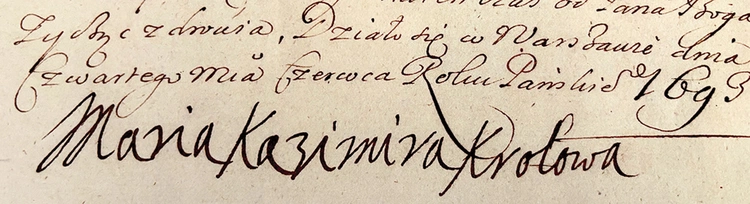 od Pana Boga
życzyć zdrowia, Działo się w Warszawie dnia
Czwartego Mca Czerwca Roku Pańskieo 1693
Maria Kazimira Krolowa